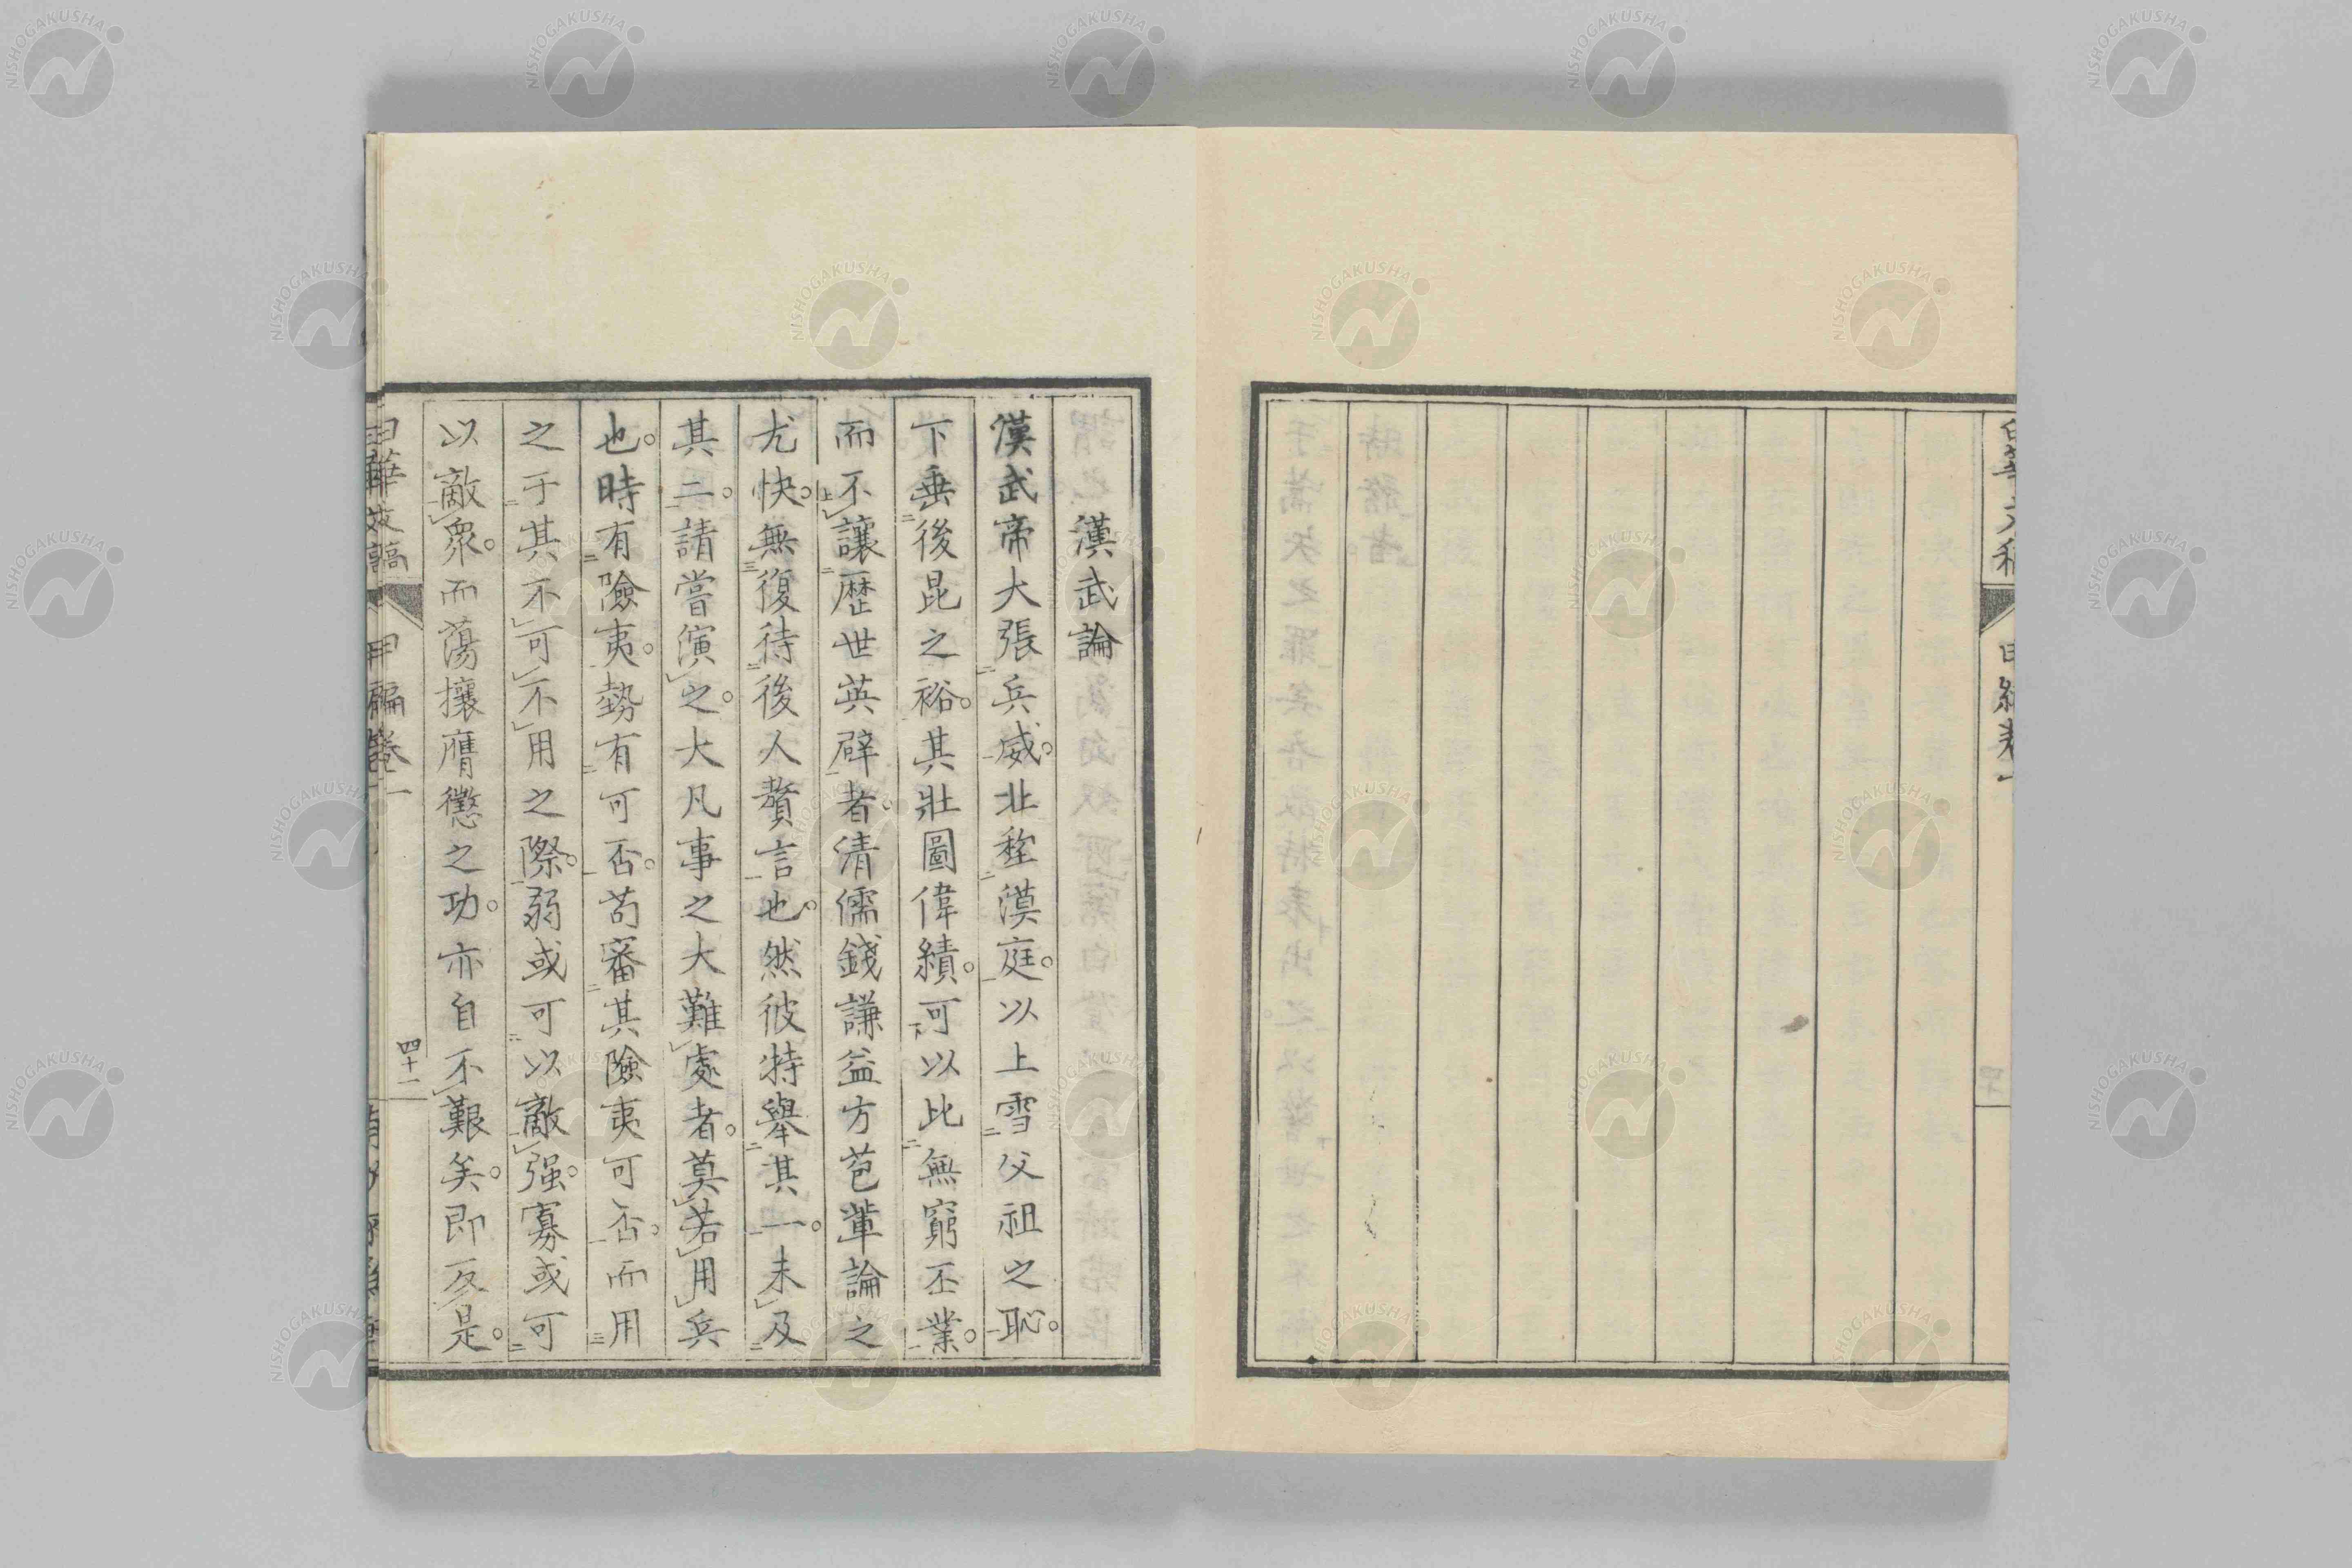 漢武論
漢武帝大張兵威。北犂漠庭。以上雪父祖之恥。
下垂後昆之裕。其壯圖偉績。可以比無窮丕業。
而不讓歷世英辟者。清儒錢謙益方苞輩論之
尤快。無復待後人贅言也。然彼特舉其一。未及
其二。請嘗演之。大凡事之大難處者。莫若用兵
也。時有險夷。勢有可否。苟審其險夷可否。而用
之于其不可不用之際。弱或可以敵强。寡或可
以敵衆。而蕩攘膺懲之功。亦自不艱矣。即反是。
四十二